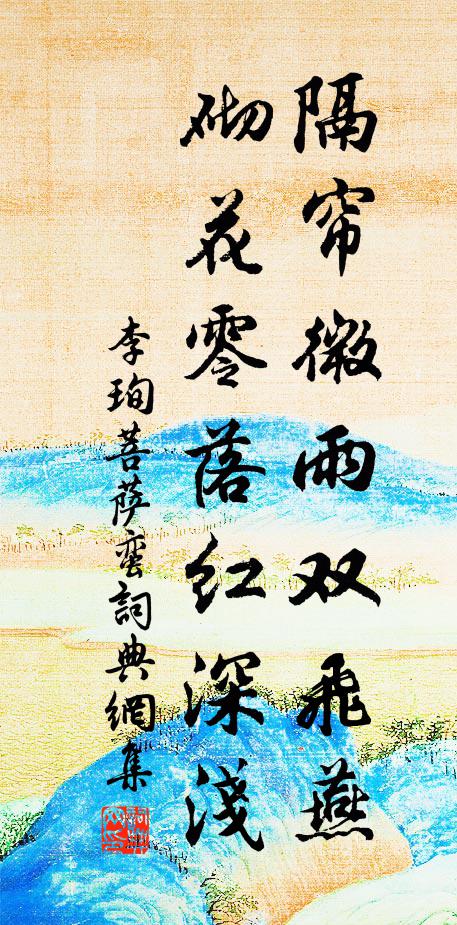 隔帘微雨双飛燕
砌花零落红深淺
李珣菩萨蛮詞典網集